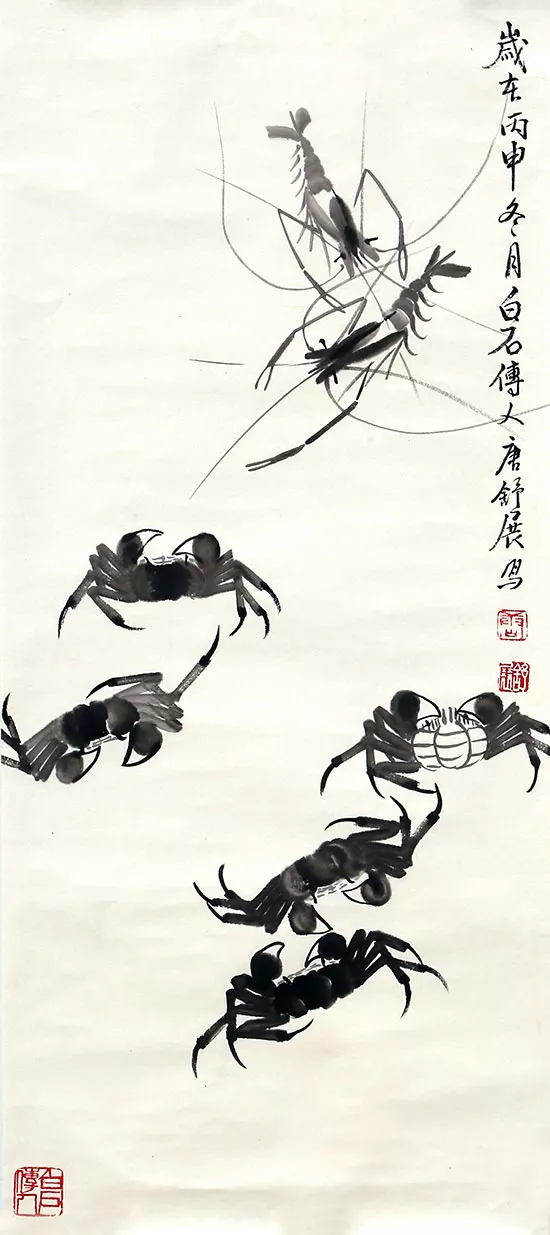 歲在丙申冬月白石傳人唐舒展寫
白石傳人